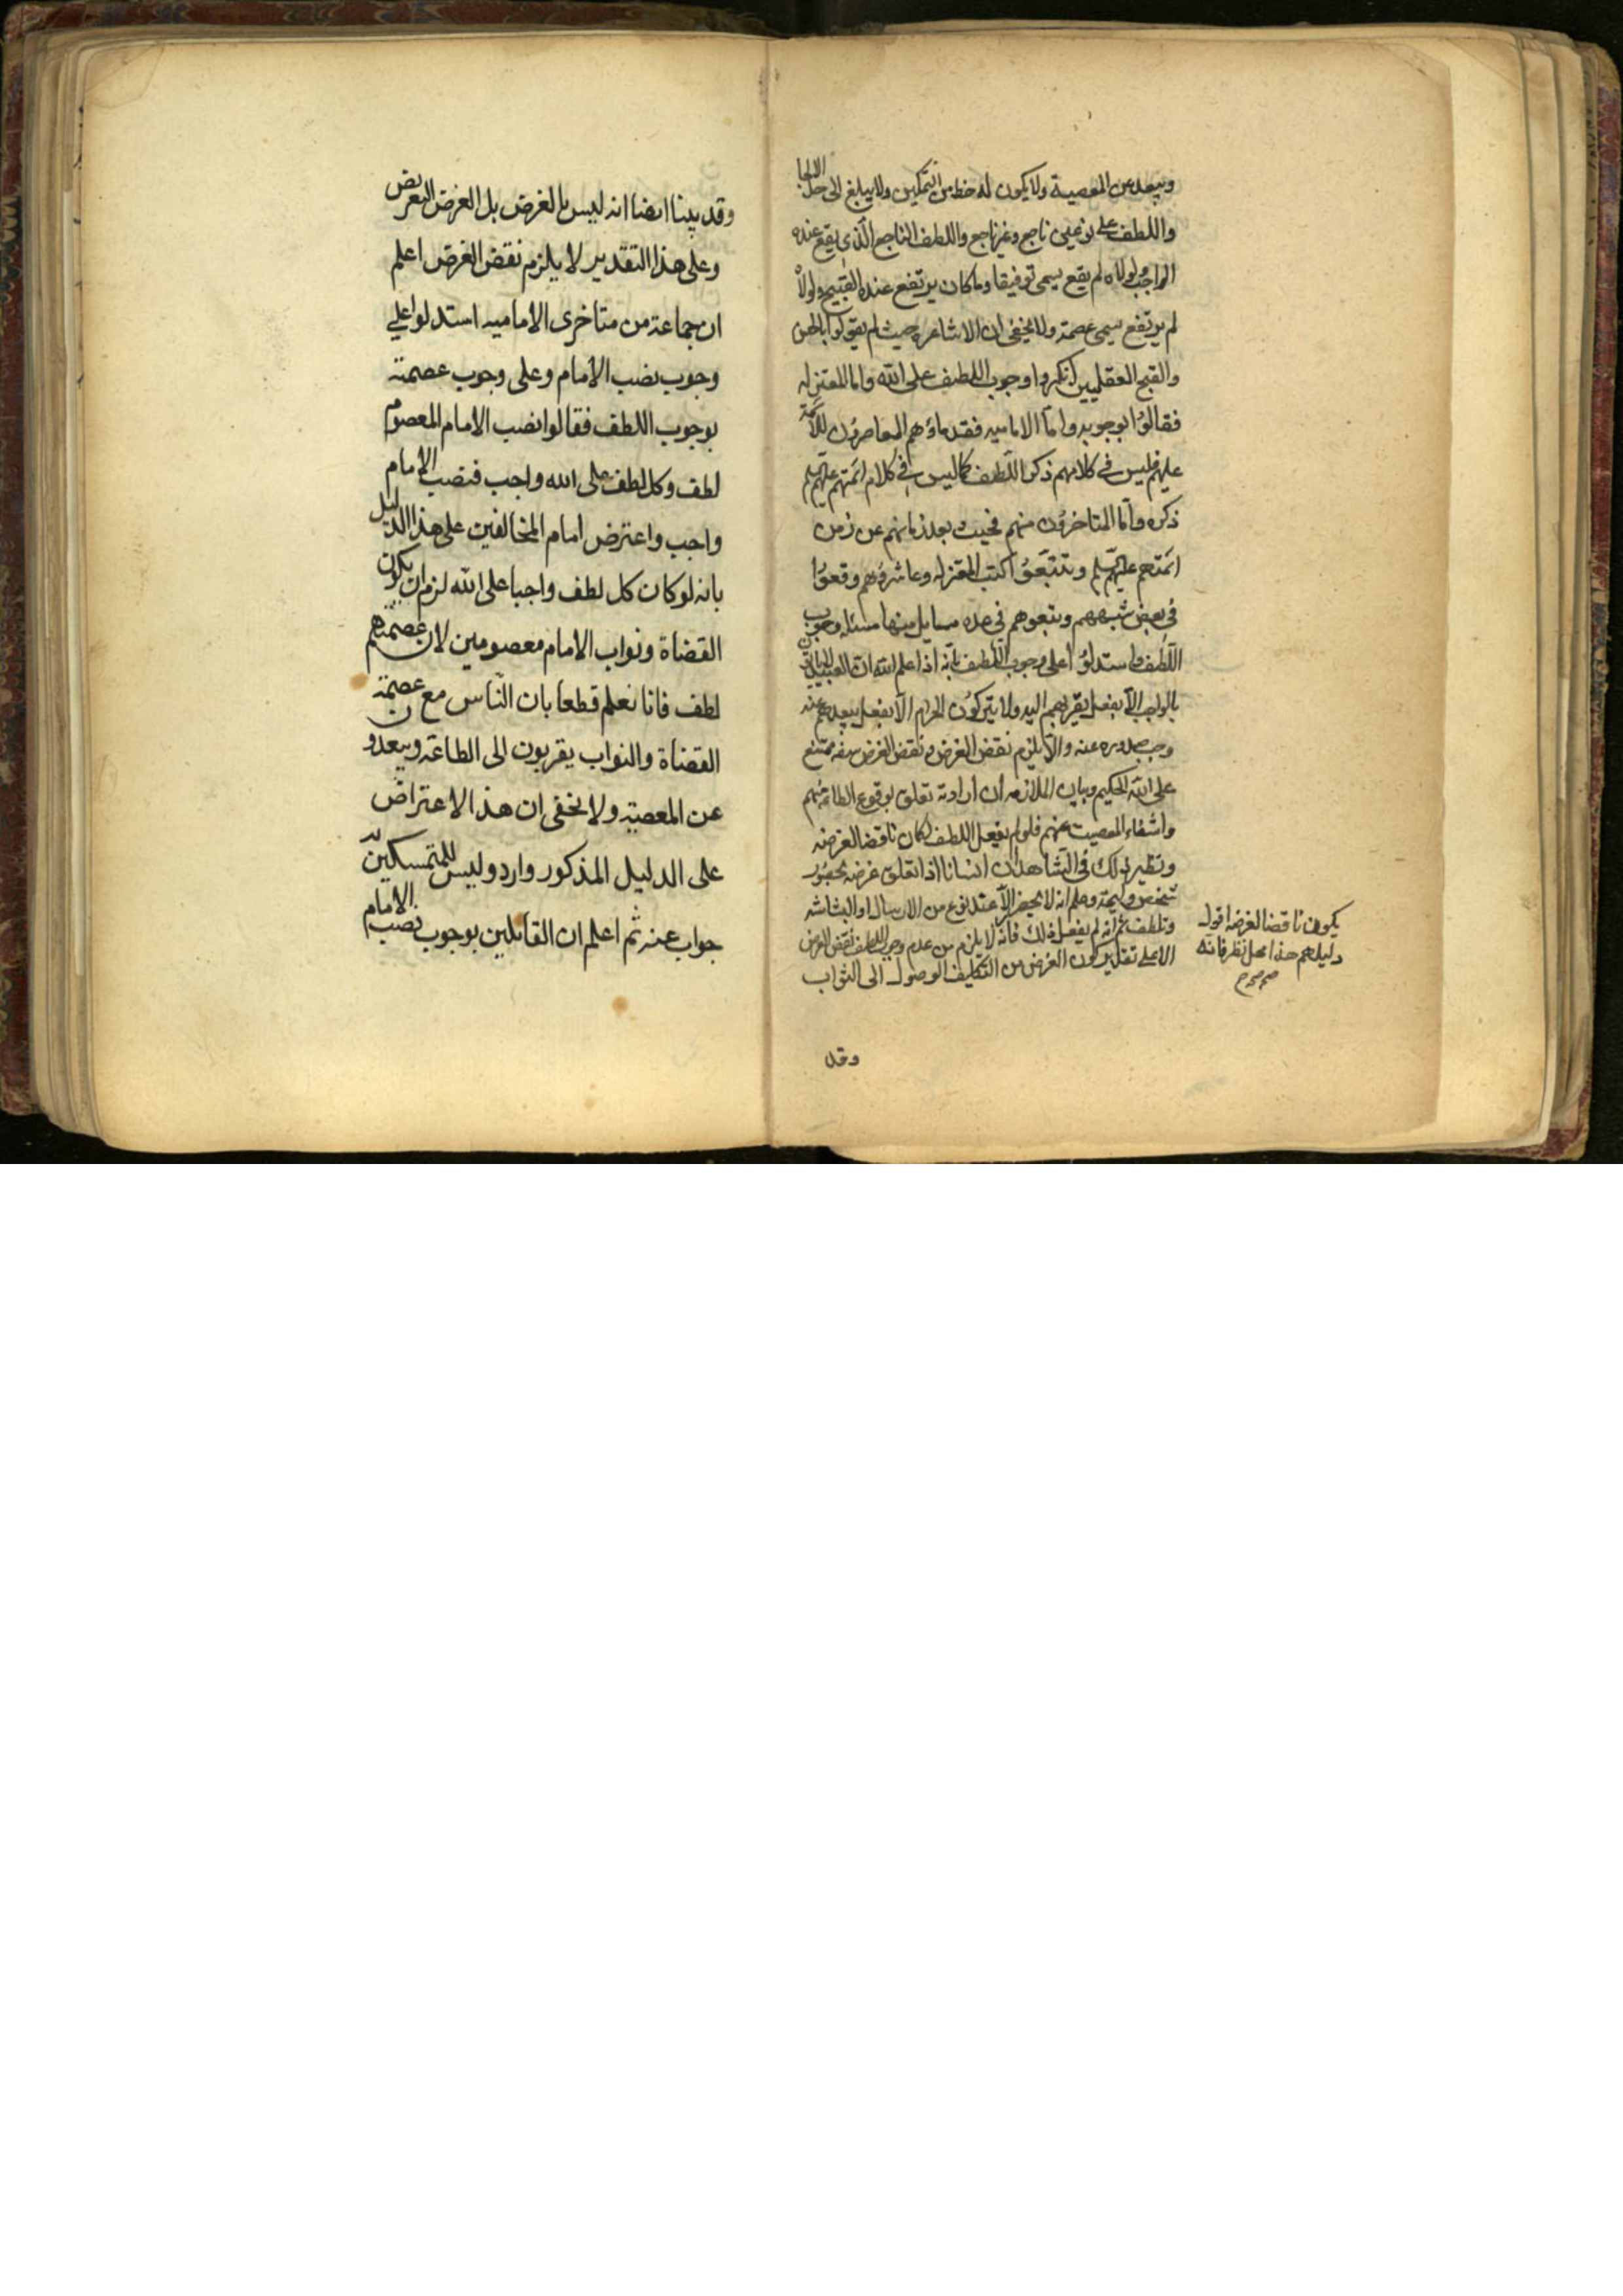 ويبعد عن المعصية ولا يكون له حظ من التمكين ولا يبلغ الى حد الالجا
واللطف على نوعين ناجع وغير ناجع واللطف الناجع الذي يقع عنده
الواجب ولولاه لم يقع يسمى توفيقا وما كان يرتفع عنده القبيح ولولاه
لم يرتفع يسمى عصمة ولا يخفى ان الاشاعره حيث لم يقولوا بالحسن
والقبح العقليين انكروا وجوب اللطف على الله واما المعتزله
فقالوا بوجوبه واما الاماميه فقدماؤهم المعاصرون للائمة
عليهم فليس في كلامهم ذكر اللطف كما ليس في كلام ائمتهم عليهم السلم
ذكره واما المتاخرون منهم فحيث بعد زمانهم عن زمن
ائمتهم عليهم السلم وتتبعوا كتب المعتزله وعاشروهم وقعوا
في بعض شبههم وتبعوهم في عده مسايل منها مسئله وجوب
اللطف واستدلوا على وجوب اللطف بانه اذا علم الله ان العبيد لا ياتون
بالواجب الا بفعل يقربهم اليه ولا يتركون الحرام الا بفعل يبعدهم عنه
وجب صدوره عنه والا يلزم نقض الغرض ونقض الغرض سفه ممتنع
على الله الحكيم وبيان الملازمه ان ارادته تعلق بوقوع الطاعة منهم
وانتفاء المعصيت عنهم فلو لم يفعل اللطف لكان ناقضا لغرضه
ونظير ذلك في الشاهد ان انسانا اذا تعلق غرضه بحضور
شخص وليمته وعلم انه لا يحضر الا عند نوع من الارسال او البشاشه
وتلطف ثم انه لم يفعل ذلك فانه لا يلزم من عدم وجوب اللطف نقض الغرض
الا على تقدير كون الغرض من التكليف الوصول الى الثواب
يكون ناقضا لغرضه اقول
دليلهم هذا محل نظر فانه
صح
وقد
وقد بينا ايضا انه ليس بالغرض بل الغرض التعريض
وعلى هذا التقدير لا يلزم نقض الغرض اعلم
ان جماعة من متاخرى الاماميه استدلوا على
وجوب نصب الامام وعلى وجوب عصمته
بوجوب اللطف فقالوا نصب الامام المعصوم
لطف وكل لطف على الله واجب فنصب الامام
واجب واعترض امام المخالفين على هذا الدليل
بانه لو كان كل لطف واجبا على الله لزم ان يكون
القضاة ونواب الامام معصومين لان عصمتهم
لطف فانا نعلم قطعا بان الناس مع عصمة
القضاة والنواب يقربون الى الطاعة ويبعدون
عن المعصية ولا يخفى ان هذا الاعتراض
على الدليل المذكور وارد وليس للمتمسكين به
جواب عنه ثم اعلم ان القائلين بوجوب نصب الامام